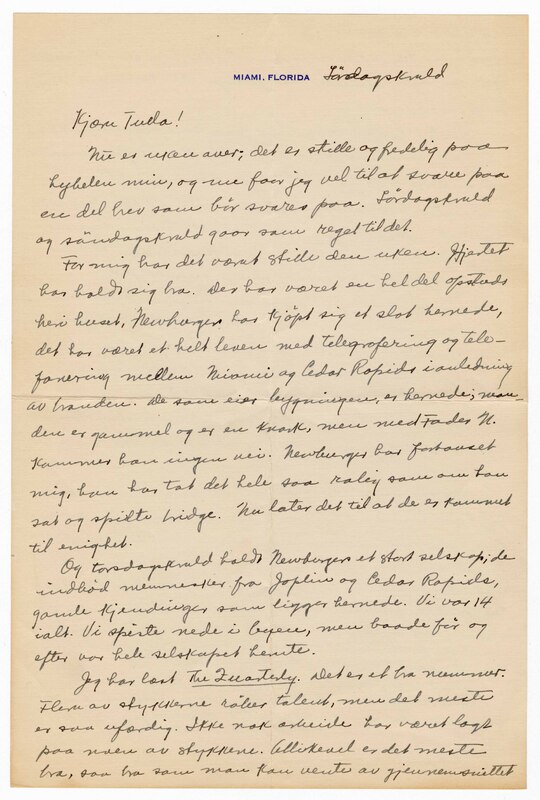 MIAMI, FLORIDA Lördagskvæld
Kjære Tulla!
Nu er uken over; det er stille og fredelig paa
hybelen min, og nu faar jeg vel til at svare paa
en del brev som bör svares paa. Lördagskvæld
og söndagskvæld gaar som regel til det.
For mig har det været stille den uken. Hjertet
har holdt sig bra. Der har været en hel del opstuds
her i huset, Newburger har kjöpt sig et slot hernede,
det har været et helt leven med telegrafering og tele-
fonering mellem Miami og Cedar Rapids i anledning
av branden. De som eier bygningen, er hernede; man-
den er gammel og er en knark, men med Fader N.
kommer han ingen vei. Newburger har forbauset
mig, han har tat det hele saa rolig som om han
sat og spilte bridge. Nu later det til at de er kommet
til enighet.
Og torsdagskvæld holdt Newburger et stort selskap; de
indböd mennesker fra Joplin og Cedar Rapids,
gamle kjendinger som ligger hernede. Vi var 14
ialt. Vi spiste nede i byen, men baade för og
efter var hele selskapet hente.
Jeg har læst The Quarterly. Det er et bra nummer.
Flere av stykkerne röber talent, men det meste
er saa ufærdig. Ikke nok arbeide har været lagt
paa noen av stykkene. Allikevel er det meste
bra, saa bra som man kan vente av gjennemsnittet